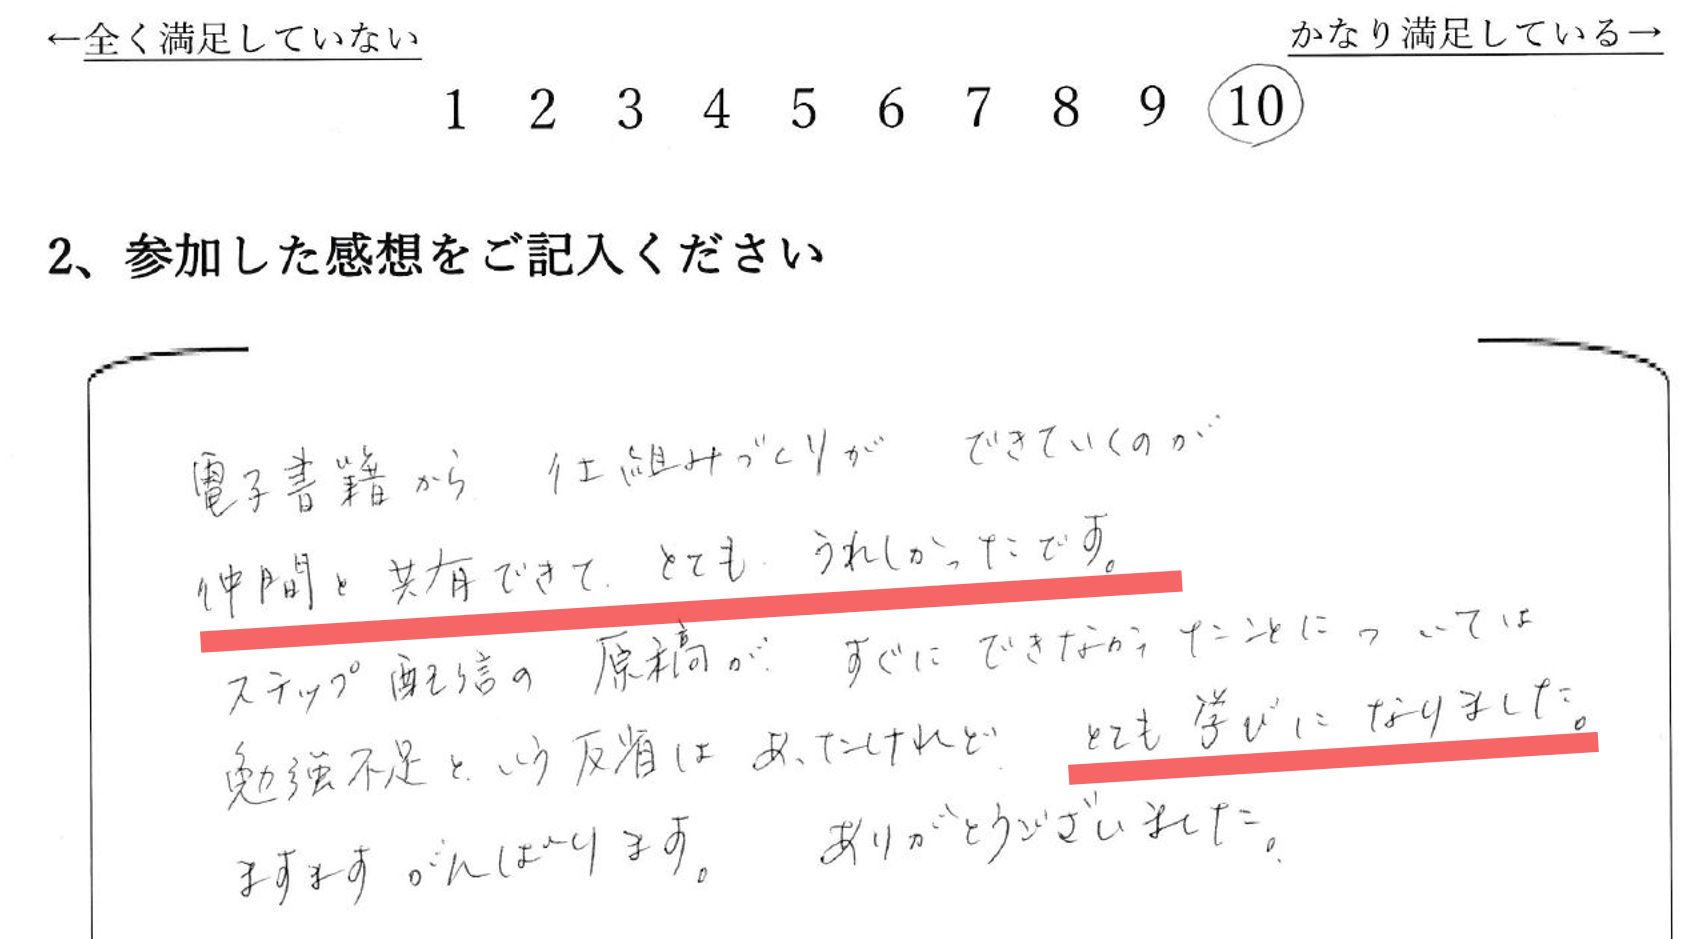 ←全く満足していない
かなり満足している→
1 2 3 4 5 6 7 8 9 10
2、参加した感想をご記入ください
電子書籍から 仕組みづくりが できていくのが
仲間と共有できて とても うれしかったです。
ステップ配信の 原稿が すぐに できなかったことについては
勉強不足という反省は あったけれど とても学びに なりました。
ますます がんばります。 ありがとうございました。